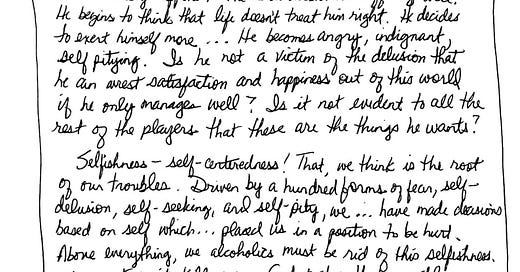 He begins to think that life doesn't treat him right. He decides
to exert himself more ... He becomes angry, indignant,
self pitying. Is he not a victim of the delusion that
he can wrest satisfaction and happiness out of this world
if he only manages well? Is it not evident to all the
rest of the players that these are the things he wants?
Selfishness - self-centeredness! That, we think is the root
of our troubles. Driven by a hundred forms of fear, self-
delusion, self-seeking, and self-pity, we ... have made decisions
based on self which... placed us in a position to be hurt.
Above everything, we alcoholics must be rid of this selfishness.